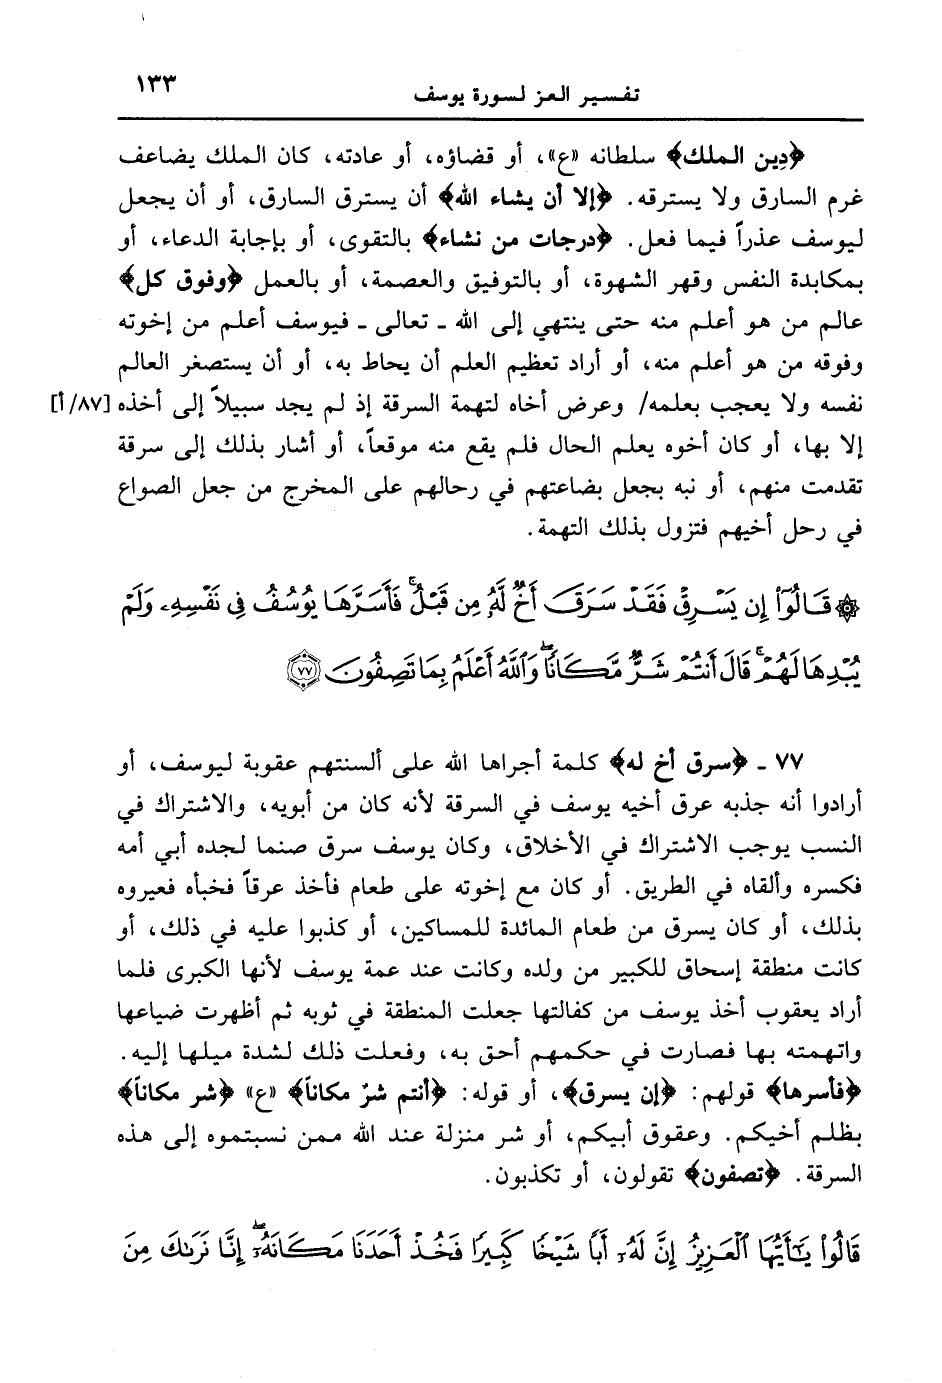 تفسير العز لسورة يوسف ١٣٣
﴿دِين الملك﴾ سلطانه «ع»، أو قضاؤه، أو عادته، كان الملك يضاعف
غرم السارق ولا يسترقه. ﴿إلا أن يشاء الله﴾ أن يسترق السارق، أو أن يجعل
ليوسف عذراً فيما فعل. ﴿درجات من نشاء﴾ بالتقوى، أو بإجابة الدعاء، أو
بمكابدة النفس وقهر الشهوة، أو بالتوفيق والعصمة، أو بالعمل ﴿وفوق كل﴾
عالم من هو أعلم منه حتى ينتهي إلى الله ـ تعالى ـ فيوسف أعلم من إخوته
وفوقه من هو أعلم منه، أو أراد تعظيم العلم أن يحاط به، أو أن يستصغر العالم
نفسه ولا يعجب بعلمه/ وعرض أخاه لتهمة السرقة إذ لم يجد سبيلاً إلى أخذه [٨٧/أ]
إلا بها، أو كان أخوه يعلم الحال فلم يقع منه موقعاً، أو أشار بذلك إلى سرقة
تقدمت منهم، أو نبه بجعل بضاعتهم في رحالهم على المخرج من جعل الصواع
في رحل أخيهم فتزول بذلك التهمة.
۞ قَالُوٓا۟ إِن يَسْرِقْ فَقَدْ سَرَقَ أَخٌ لَّهُۥ مِن قَبْلُ ۚ فَأَسَرَّهَا يُوسُفُ فِى نَفْسِهِۦ وَلَمْ
يُبْدِهَا لَهُمْ ۚ قَالَ أَنتُمْ شَرٌّ مَّكَانًا ۖ وَٱللَّهُ أَعْلَمُ بِمَا تَصِفُونَ ٧٧
٧٧ ـ ﴿سرق أخ له﴾ كلمة أجراها الله على ألسنتهم عقوبة ليوسف، أو
أرادوا أنه جذبه عرق أخيه يوسف في السرقة لأنه كان من أبويه، والاشتراك في
النسب يوجب الاشتراك في الأخلاق، وكان يوسف سرق صنما لجده أبي أمه
فكسره وألقاه في الطريق. أو كان مع إخوته على طعام فأخذ عرقاً فخبأه فعيروه
بذلك، أو كان يسرق من طعام المائدة للمساكين، أو كذبوا عليه في ذلك، أو
كانت منطقة إسحاق للكبير من ولده وكانت عند عمة يوسف لأنها الكبرى فلما
أراد يعقوب أخذ يوسف من كفالتها جعلت المنطقة في ثوبه ثم أظهرت ضياعها
واتهمته بها فصارت في حكمهم أحق به، وفعلت ذلك لشدة ميلها إليه.
﴿فأسرها﴾ قولهم: ﴿إن يسرق﴾، أو قوله: ﴿أنتم شرٌ مكاناً﴾ «ع» ﴿شر مكاناً﴾
بظلم أخيكم. وعقوق أبيكم، أو شر منزلة عند الله ممن نسبتموه إلى هذه
السرقة. ﴿تصفون﴾ تقولون، أو تكذبون.
قَالُوا۟ يَـٰٓأَيُّهَا ٱلْعَزِيزُ إِنَّ لَهُۥٓ أَبًا شَيْخًا كَبِيرًا فَخُذْ أَحَدَنَا مَكَانَهُۥٓ ۖ إِنَّا نَرَىٰكَ مِنَ